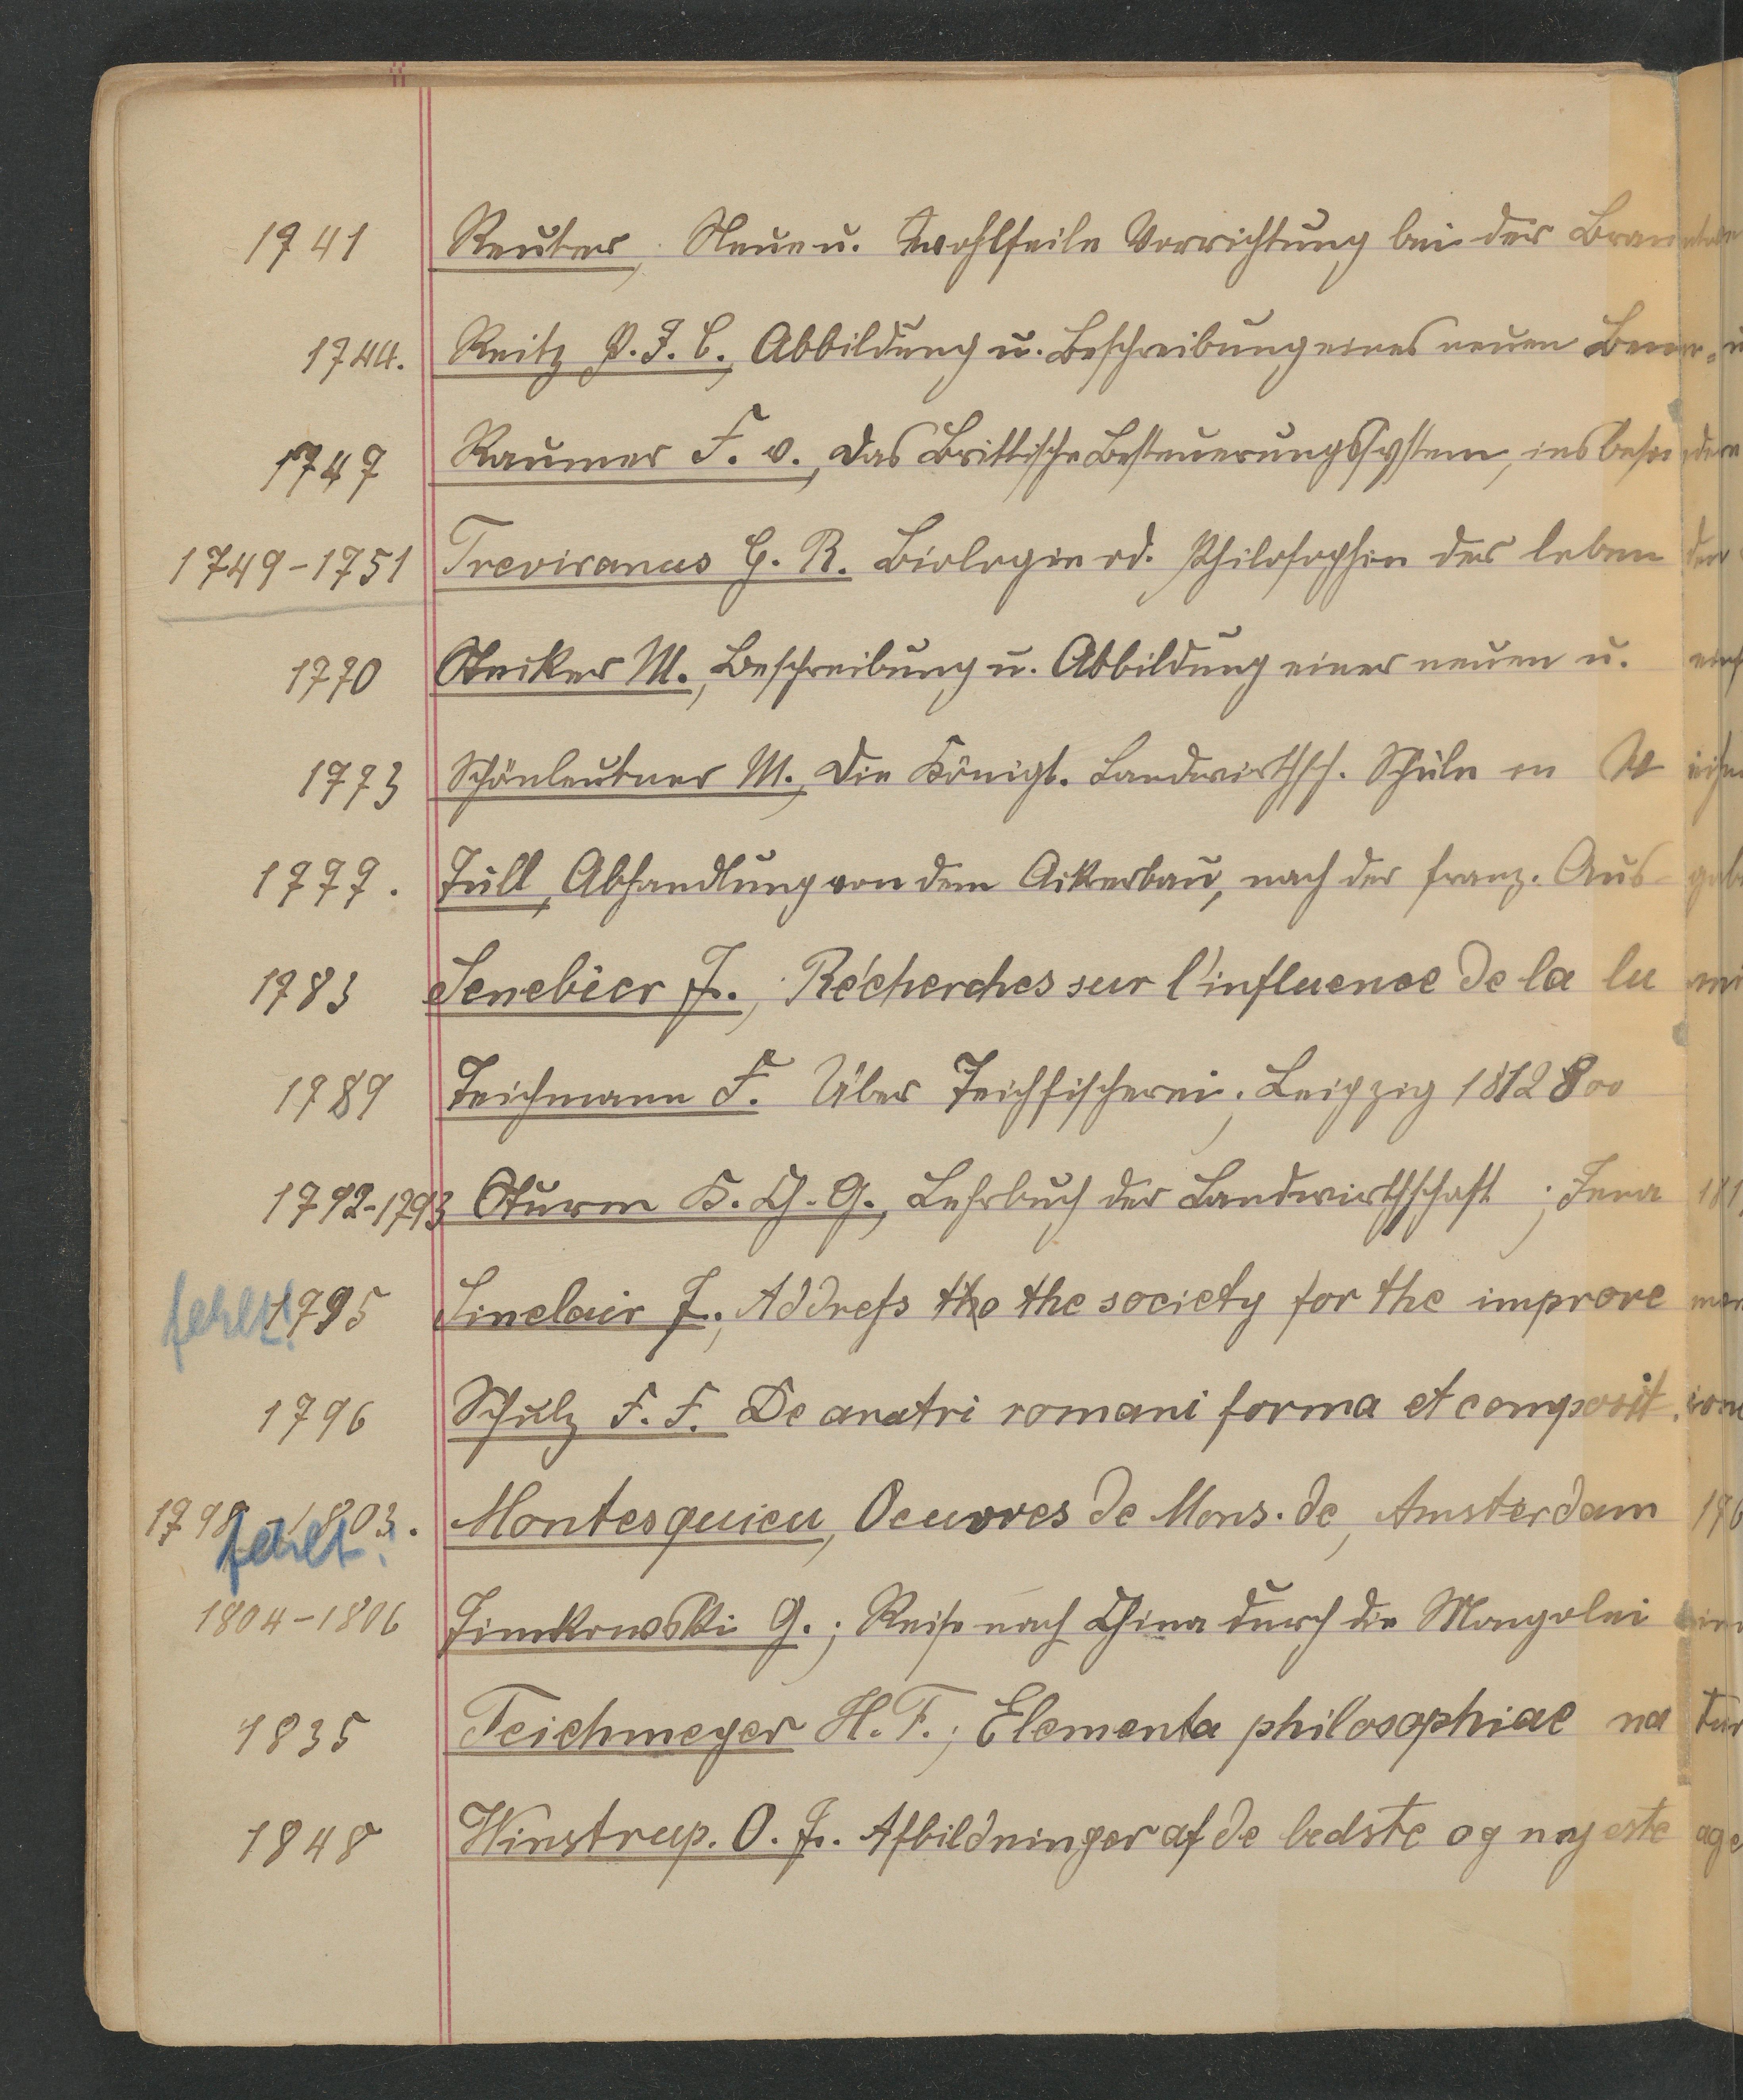 1741 Reuter, Neue u. wohlfeile Vorrichtung bei der Branntw
1744. Reitz P. J. C., Abbildung u. Beschreibung eines neuen Brenn- u
1747 Raumer F. v., Das Brittische Besteuerungssystem, insbesondere
1749-1751 Treviranus G. R. Biologie od. Philosophie der lebenden
1770 Stecker M., Beschreibung u. Abbildung einer neuen u. einf
1773 Schönleutner M., Die Königl. Landwirthsch. Schule in Weihen
1777. Tull, Abhandlung von dem Ackerbau, nach der franz. Ausgabe
1783 Senebier J., Récherches sur l'influence de la lumi
1789 Teichmann F. Über Teichfischerei; Leipzig 1812 800
1792-1793 Sturm K. Ch. G., Lehrbuch der Landwirthschaft; Jena 181
fehlt! 1795 Sinclair J., Addreſs tho the society for the improvemen
1796 Schulz F. F. De aratri romani forma et composit.ione
1798-1803. Montesquieu, Oeuvres de Mons. de, Amsterdam 176
fehlt!
1804-1806 Timkowski G.; Reise nach China durch die Mongolei in
1835 Teichmeyer H. F.; Elementa philosophiae natur
1848 Winstrup. O. J. Afbildninger af de bedste og nyeste age